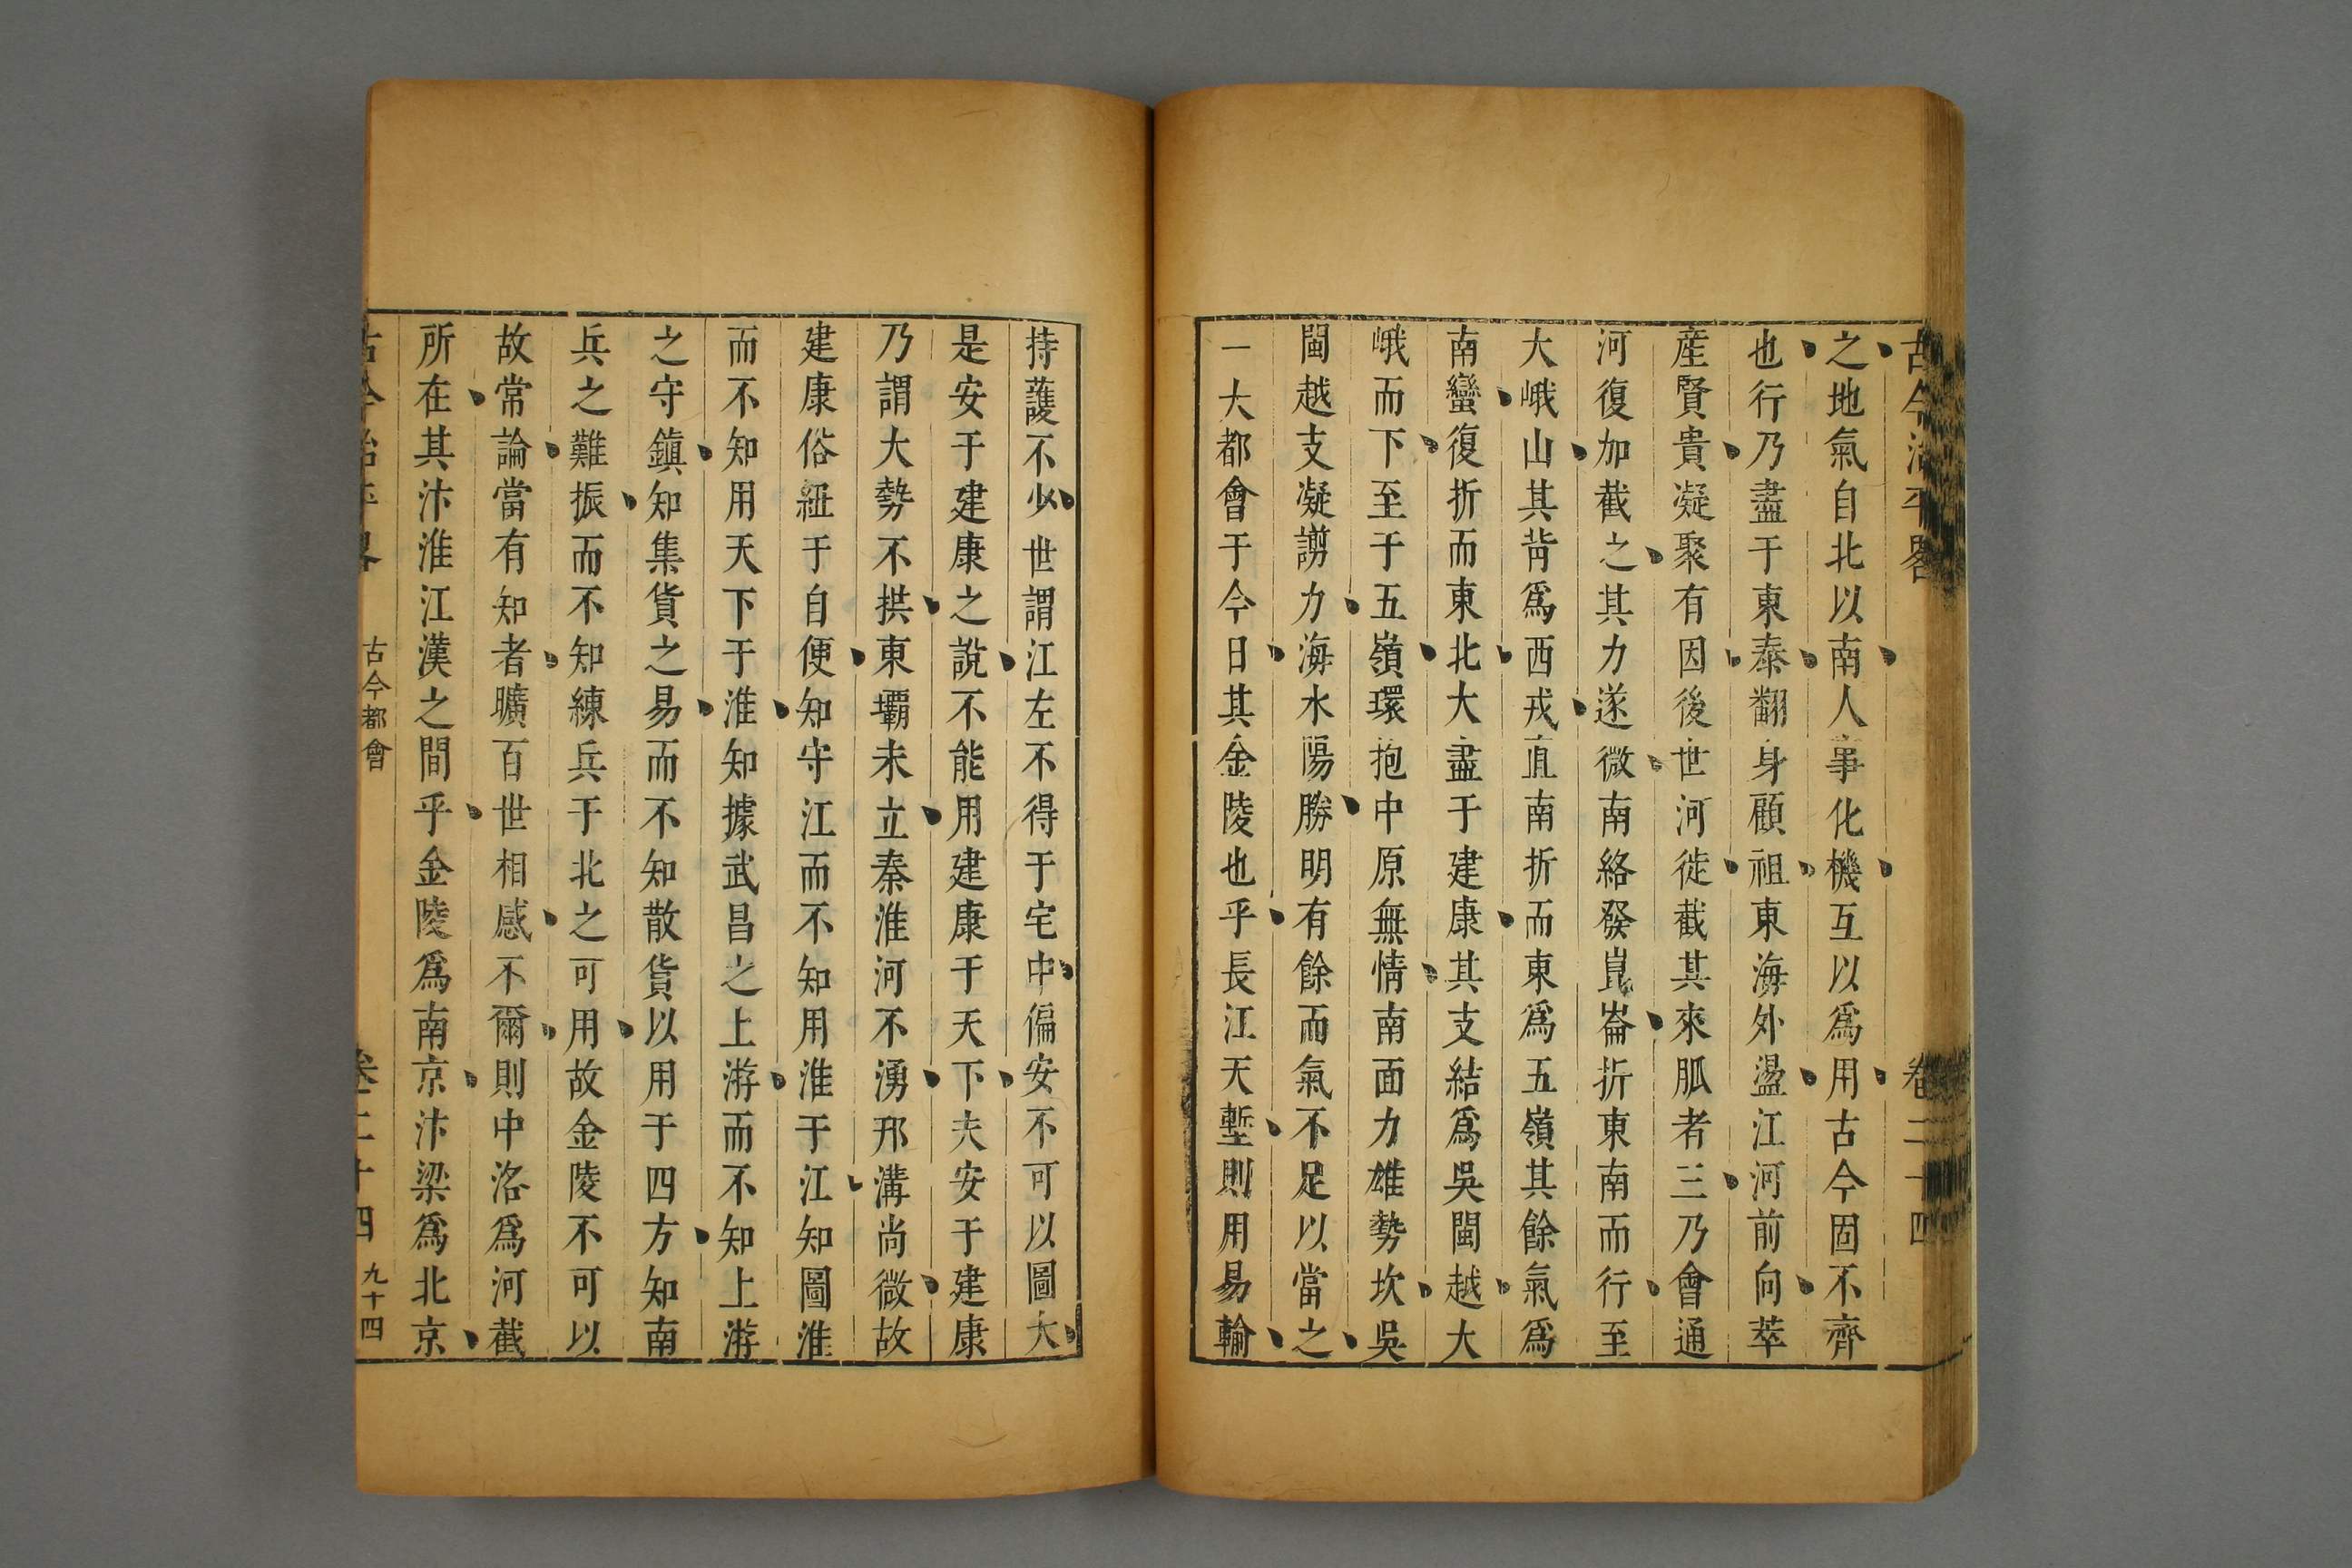 古今治平畧 卷二十四
之地氣自北以南人事化機互以爲用古今固不齊
也行乃盡于東泰翻身顧祖東海外盪江河前向萃
産賢貴凝聚有因後世河徙截其來脈者三乃會通
河復加截之其力遂微南絡發崑崙折東南而行至
大峨山其背爲西戎直南折而東爲五嶺其餘氣爲
南蠻復折而東北大盡于建康其支結爲吳閩越大
峨而下至于五嶺環抱中原無情南面力雄勢坎吳
閩越支凝謭力海水陽勝明有餘而氣不足以當之
一大都會于今日其金陵也乎長江天塹則用易輸
持護不少世謂江左不得于宅中偏安不可以圖大
是安于建康之說不能用建康于天下夫安于建康
乃謂大勢不拱東壩未立秦淮河不湧邗溝尚微故
建康俗紐于自便知守江而不知用淮于江知圖淮
而不知用天下于淮知據武昌之上游而不知上游
之守鎮知集貨之易而不知散貨以用于四方知南
兵之難振而不知練兵于北之可用故金陵不可以
故常論當有知者曠百世相感不爾則中洛爲河截
所在其汴淮江漢之間乎金陵爲南京汴梁爲北京
古今治平畧 古今都會 卷二十四 九十四